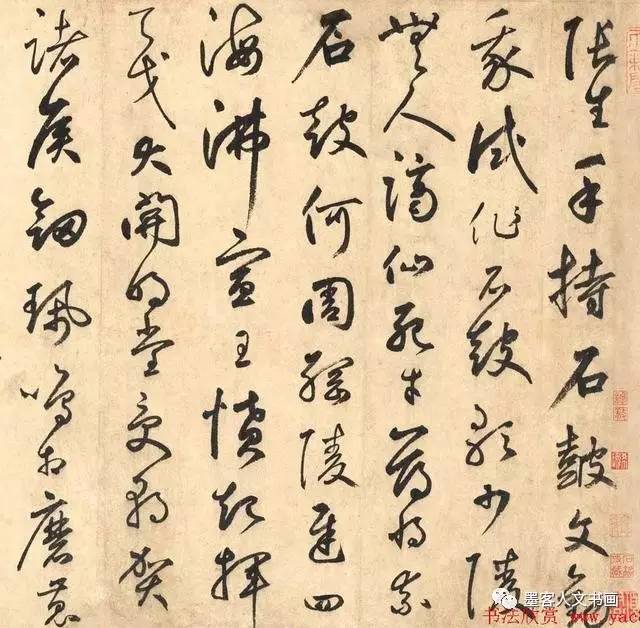 張生手持石鼓文勸
我試作石鼓歌少陵
無人謫仙死才薄將奈
石鼓何周綱陵遲四
海沸宣王憤起揮
天戈大開明堂受朝賀
諸侯劒珮鳴相磨蒐
墨客人文书画
书法欣赏 www.yac